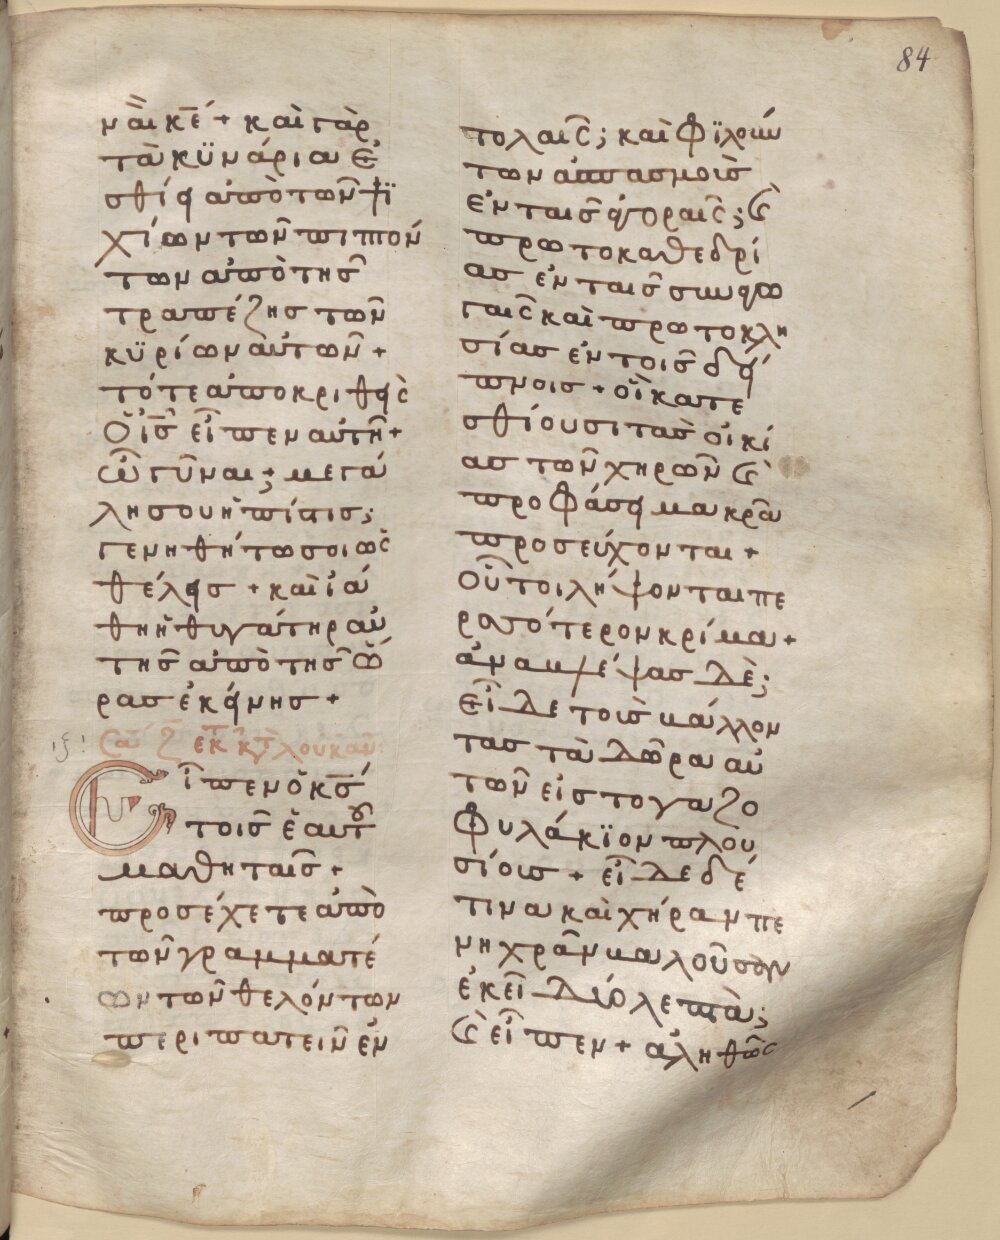 84
ναὶ κε̄ + καὶ γὰρ
τὰ κϋνάρια ἐ
σθίει ἀπὸ τῶν ψϊ
χίων τῶν πιπτόν
των ἀπὸ τῆσ
τραπέζησ τῶν
κϋρίων αὐτῶν +
τότε ἀποκριθεὶς
ὁ ισ̄ εἶπεν αὐτῆ +
ὦ γῦναι; μεγά
λη σου ἡ πίστισ;
γενηθήτω σοι ὡς
θέλεισ + καὶ ϊά
θη ἡ θυγάτηρ αὐ
τῆσ ἀπὸ τῆσ ὥ
ρασ ἐκείνησ +
Σα ζ̄ ἐκ τ κτ λουκαν
Εἶπεν ὁ κσ̄
τοῖσ ἑαυτοῦ
μαθηταῖσ +
προσέχετε ἀπὸ
τῶν γραμματέ
ων τῶν θελόντων
περιπατεῖν ἐν
στολαῖς; καὶ φϊλούν
των ἀσπασμοὺσ
ἐν ταῖσ ἀγοραῖς; καὶ
πρωτοκαθεδρί
ασ ἐν ταῖσ συναγω
γαῖς καὶ πρωτοκλη
σίασ ἐν τοῖσ δεί
πνοισ + οἳ κατε
σθίουσι τὰσ οἰκί
ασ τῶν χηρῶν καὶ
προφάσει μακρὰ
προσεύχονται +
οὗτοι λήψονται πε
ρισσότερον κρίμα +
ἀναμβλέψασ δὲ;
εἶδε τοὺσ βάλλον
τασ τὰ δῶρα αὐ
τῶν εἰσ τὸ γαζο
φυλάκϊον πλου
σίουσ + εἶδε δέ
τινα καὶ χήραν πε
νηχρὰν βαλοῦσαν
ἐκεῖ δύο λεπτὰ;
καὶ εἶπεν + ἀληθῶς